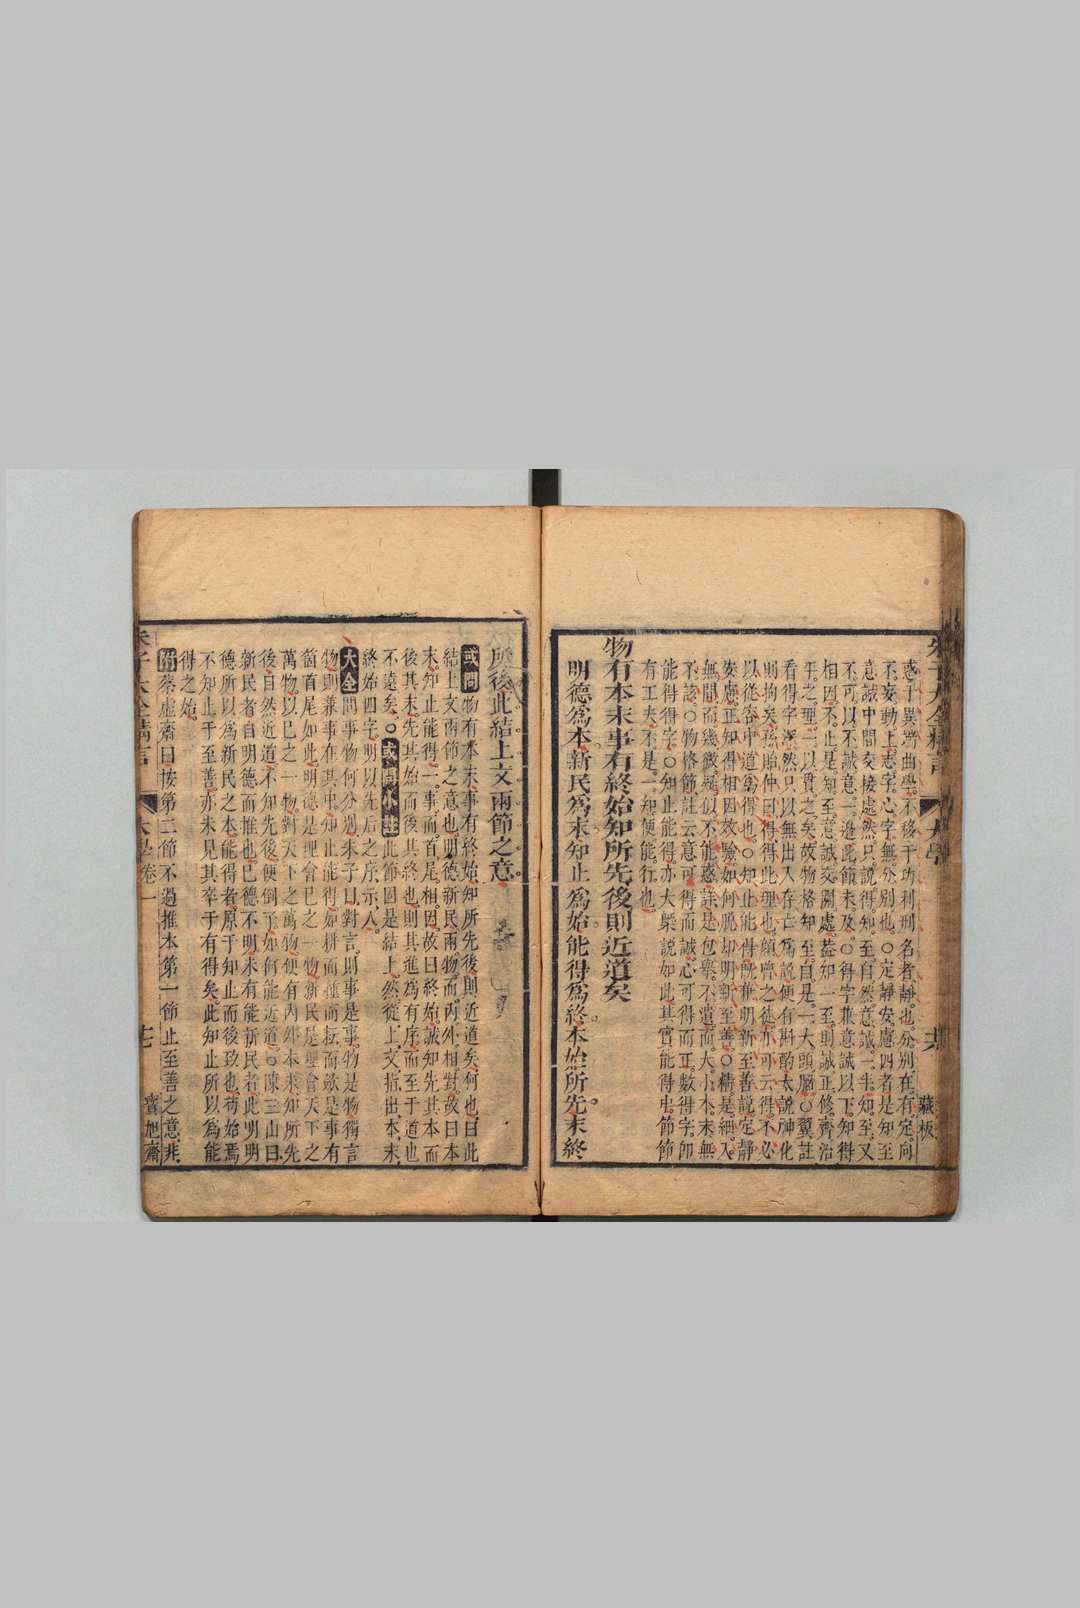 惑于異端曲學不移于功利刑名者靜也分別在有定向
不妄動上志字心字無分別也○定靜安慮四者是知至
意誠中間交接處然只說得知至自然意誠一半知至又
不可以不誠意一邊此節未及○得字兼意誠以下知得
相因不止是知至意誠交關處蓋知一至則誠正修齊治
平之理一以貫之矣故物格知至自是一大頭腦○翼註
看得字渾然只以無出入存亡為說便有斟酌太說神化
則拘矣孫貽仲曰得得此理也顏齊之徒亦可云得不必
以從容中道為得也○知止能得旣兼明新至善說定靜
安慮正知得相因效驗如何脫却明新至善○精是細入
無間而幾微疑似不能惑詳是包舉不遺而大小本末無
不該○物格節註云意可得而誠心可得而正數得字卽
能得得字○知止能得亦大槩說如此其實能得中節節
有工夫不是一知便能行也
物有本末事有終始知所先後則近道矣
明德為本新民為末知止為始能得為終本始所先末終
所後此結上文兩節之意
或問物有本末事有終始知所先後則近道矣何也曰此
結上文兩節之意也明德新民兩物而內外相對故曰本
末知止能得一事而首尾相因故曰終始誠知先其本而
後其末先其始而後其終也則其進為有序而至于道也
不遠矣○或問小註此節固是結上然從上文指出本末
終始四字明以先后之序示人
大全問事物何分別朱子曰對言則事是事物是物獨言
物則兼事在其中知止能得如耕而種而耘而斂是事有
箇首尾如此明德是理會己之一物新民是理會天下之
萬物以己之一物對天下之萬物便有內外本末知所先
後自然近道不知先後便倒了如何能近道○陳三山曰
新民者自明德而推也己德不明未有能新民者此明明
德所以為新民之本能得者原于知止而後致也苟始焉
不知止于至善亦未見其卒于有得矣此知止所以為能
得之始
附蔡虛齋曰按第二節不過推本第一節止至善之意非
大學卷一
寶旭齋
藏板